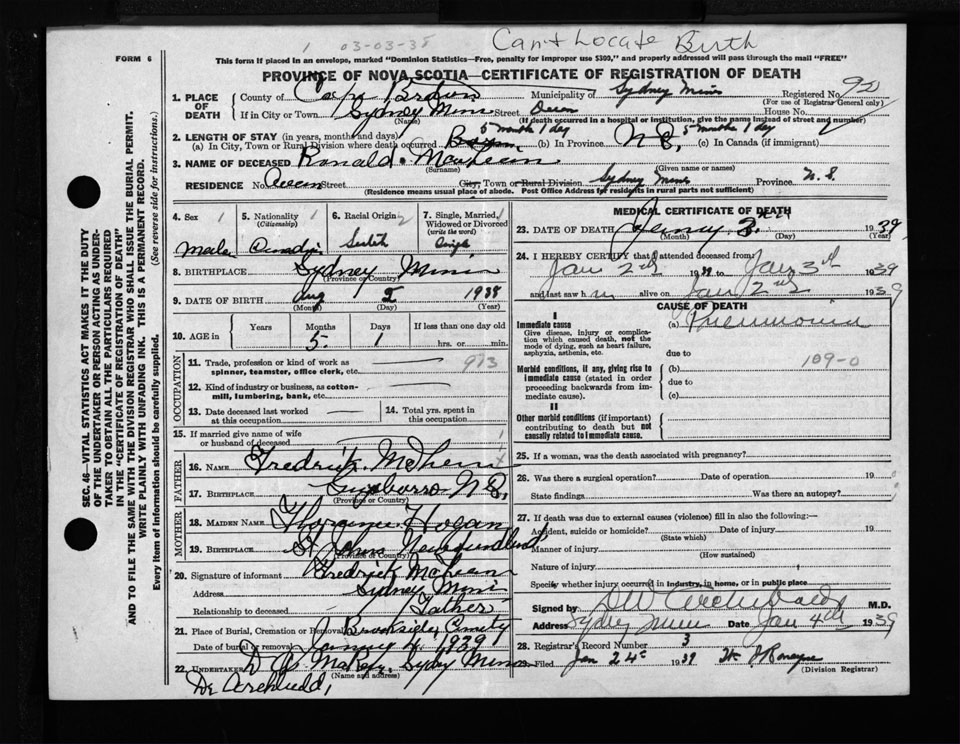 Can't Locate Birth
1 03-03-38
FORM 6
This form if placed in an envelope, marked "Dominion Statistics—Free, penalty for improper use $300," and properly addressed will pass through the mail "FREE"
PROVINCE OF NOVA SCOTIA—CERTIFICATE OF REGISTRATION OF DEATH
1. PLACE OF DEATH
County of Cape Breton Municipality of Sydney Mines Registered No.
(For use of Registrar General only)
If in City or Town Sydney Mines Street House No.
(Name) (If death occurred in a hospital or institution, give the name instead of street and number)
2. LENGTH OF STAY (in years, months and days) 5 months 1 day 5 months 1 day
(a) In City, Town or Rural Division where death occurred (b) In Province N S, (c) In Canada (if immigrant)
3. NAME OF DECEASED Ronald
(Surname) (Given name or names)
RESIDENCE No. Street City, Town or Rural Division Sydney Mines Province N. S.
(Residence means usual place of abode. Post Office Address for residents in rural parts not sufficient)
SEC. 46—VITAL STATISTICS ACT MAKES IT THE DUTY
OF THE UNDERTAKER OR PERSON ACTING AS UNDER-
TAKER TO OBTAIN ALL THE PARTICULARS REQUIRED
IN THE "CERTIFICATE OF REGISTRATION OF DEATH"
AND TO FILE THE SAME WITH THE DIVISION REGISTRAR WHO SHALL ISSUE THE BURIAL PERMIT.
WRITE PLAINLY WITH UNFADING INK. THIS IS A PERMANENT RECORD.
Every item of Information should be carefully supplied. (See reverse side for instructions.)
4. Sex 1
5. Nationality 1
(Citizenship)
6. Racial Origin 2
7. Single, Married, Widowed or Divorced
(write the word)
8. BIRTHPLACE Sydney Mines
(Province or Country)
9. DATE OF BIRTH Aug 2 1938
(Month) (Day) (Year)
10. AGE in
Years Months Days If less than one day old
5. 1 hrs. or min.
OCCUPATION
11. Trade, profession or kind of work as
spinner, teamster, office clerk, etc. 973
12. Kind of industry or business, as cotton-
mill, lumbering, bank, etc.
13. Date deceased last worked
at this occupation
14. Total yrs. spent in
this occupation
15. If married give name of wife
or husband of deceased 1
FATHER
16. NAME Fredrick
17. BIRTHPLACE N S,
(Province or Country)
MOTHER
18. MAIDEN NAME Hogan
19. BIRTHPLACE St Johns Newfoundland
(Province or Country)
20. Signature of informant Fredrick
Address Sydney Mines
Relationship to deceased Father
21. Place of Burial, Cremation or Removal Brookside
Date of burial or removal 1939
22. UNDERTAKER Sydney Mines
(Name and address)
MEDICAL CERTIFICATE OF DEATH
23. DATE OF DEATH 3 1939
(Month) (Day) (Year)
24. I HEREBY CERTIFY that I attended deceased from:
Jan 2nd 1939 to Jan 3rd 1939
and last saw h alive on Jan 2nd 1939
CAUSE OF DEATH
I
Immediate cause
Give disease, injury or complica-
tion which caused death, not the
mode of dying, such as heart failure,
asphyxia, asthenia, etc.
(a) Pneumonia
due to
Morbid conditions, if any, giving rise to
immediate cause (stated in order
proceeding backwards from im-
mediate cause).
(b) 109-0
due to
(c)
II
Other morbid conditions (if important)
contributing to death but not
causally related to immediate cause.
25. If a woman, was the death associated with pregnancy?
26. Was there a surgical operation? Date of operation 19
State findings Was there an autopsy?
27. If death was due to external causes (violence) fill in also the following:—
Accident, suicide or homicide? Date of injury 19
(State which)
Manner of injury
(How sustained)
Nature of injury
Specify whether injury occurred in industry, in home, or in public place
Signed by Archibald M.D.
Address Sydney Mines Date Jan 4th 1939
28. Registrar's Record Number 3
29. Filed Jan 24 1939
(Division Registrar)